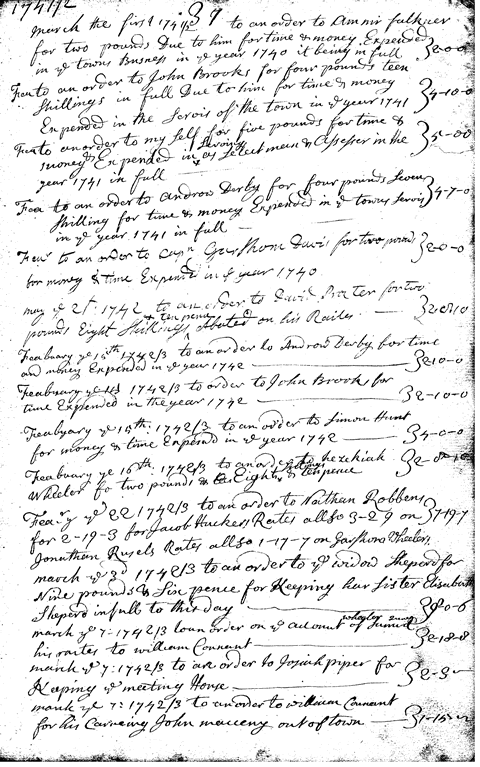 1741/2
39
march the first 1741/2 to an order to Ammir faulkner
for two pounds Due to him for time & money Expended 2-0-0
in ye towns Busness in ye year 1740 it being in full
to an order to John Brooks for four pounds teen
Shillings in full Due to him for time & money 4-10-0
Expended in the Servis of the town in ye year 1741
to an order to my Self for five pounds for time & 5-00
money Expended in Serving as Select man & Assesser in the
year 1741 in full
to an order to Androw Derby for four pounds Seven
Shilling for time & money Expended in ye towns Servis 4-7-0
in ye year 1741 in full
to an order to Capn Garshom Davis for two pounds 2-0-0
for money & time Expended in ye year 1740
may ye 21: 1742 to an order to David for two
pounds Eight Shillings & ten pence abated on his Raites
Feabuary ye 1742/3 to an order to Androw Derby for time
and money Expended in ye year 1742 10-0
Feabuary ye 1742/3 to order to John Brooks for
time Expended in the year 1742 2-10-0
Feabuary ye 15th: 1742/3 to an order to Simon Hunt
for money & time Expend in ye year 1742 4-0-0
Feabuary ye 16th: 1742/3 to an order to hezekiah
Wheeler fo two pounds & Eight Shillings & tenpence
Feary ye 22 1742/3 to an order to Nathan Robbens
for 2-19-3 for Jacob Rates allso 3-2-9 on 7-19-7
Jonathan Rusels Rates allso 1-17-7 on Garshom Wheeler
march ye 3d 1742/3 to an order to ye widow Sheperd for
Nine pounds & Six pence for Keeping har Sister Elisabeth
Sheperd in full to this day 9-0-6
march ye 7: 1742/3 to an order on ye account of Samuel wheeler
his raites to william Connant 2-18-8
march ye 7: 1742/3 to an order to Josiah piper for
Keeping ye meeting House 2-3-
march ye 7: 1742/3 to an order to william Connant
for his Carrieing John out of town 1-15-